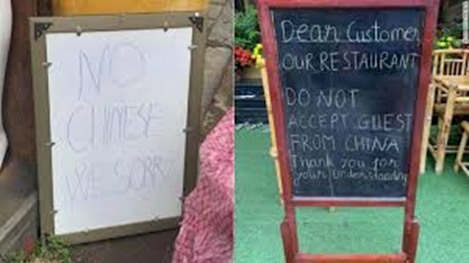 NO
CHINESE
WE SORRY
Dear Customer
OUR RESTAURANT
DO NOT
ACCEPT GUEST
FROM CHINA
Thank you for
your understanding